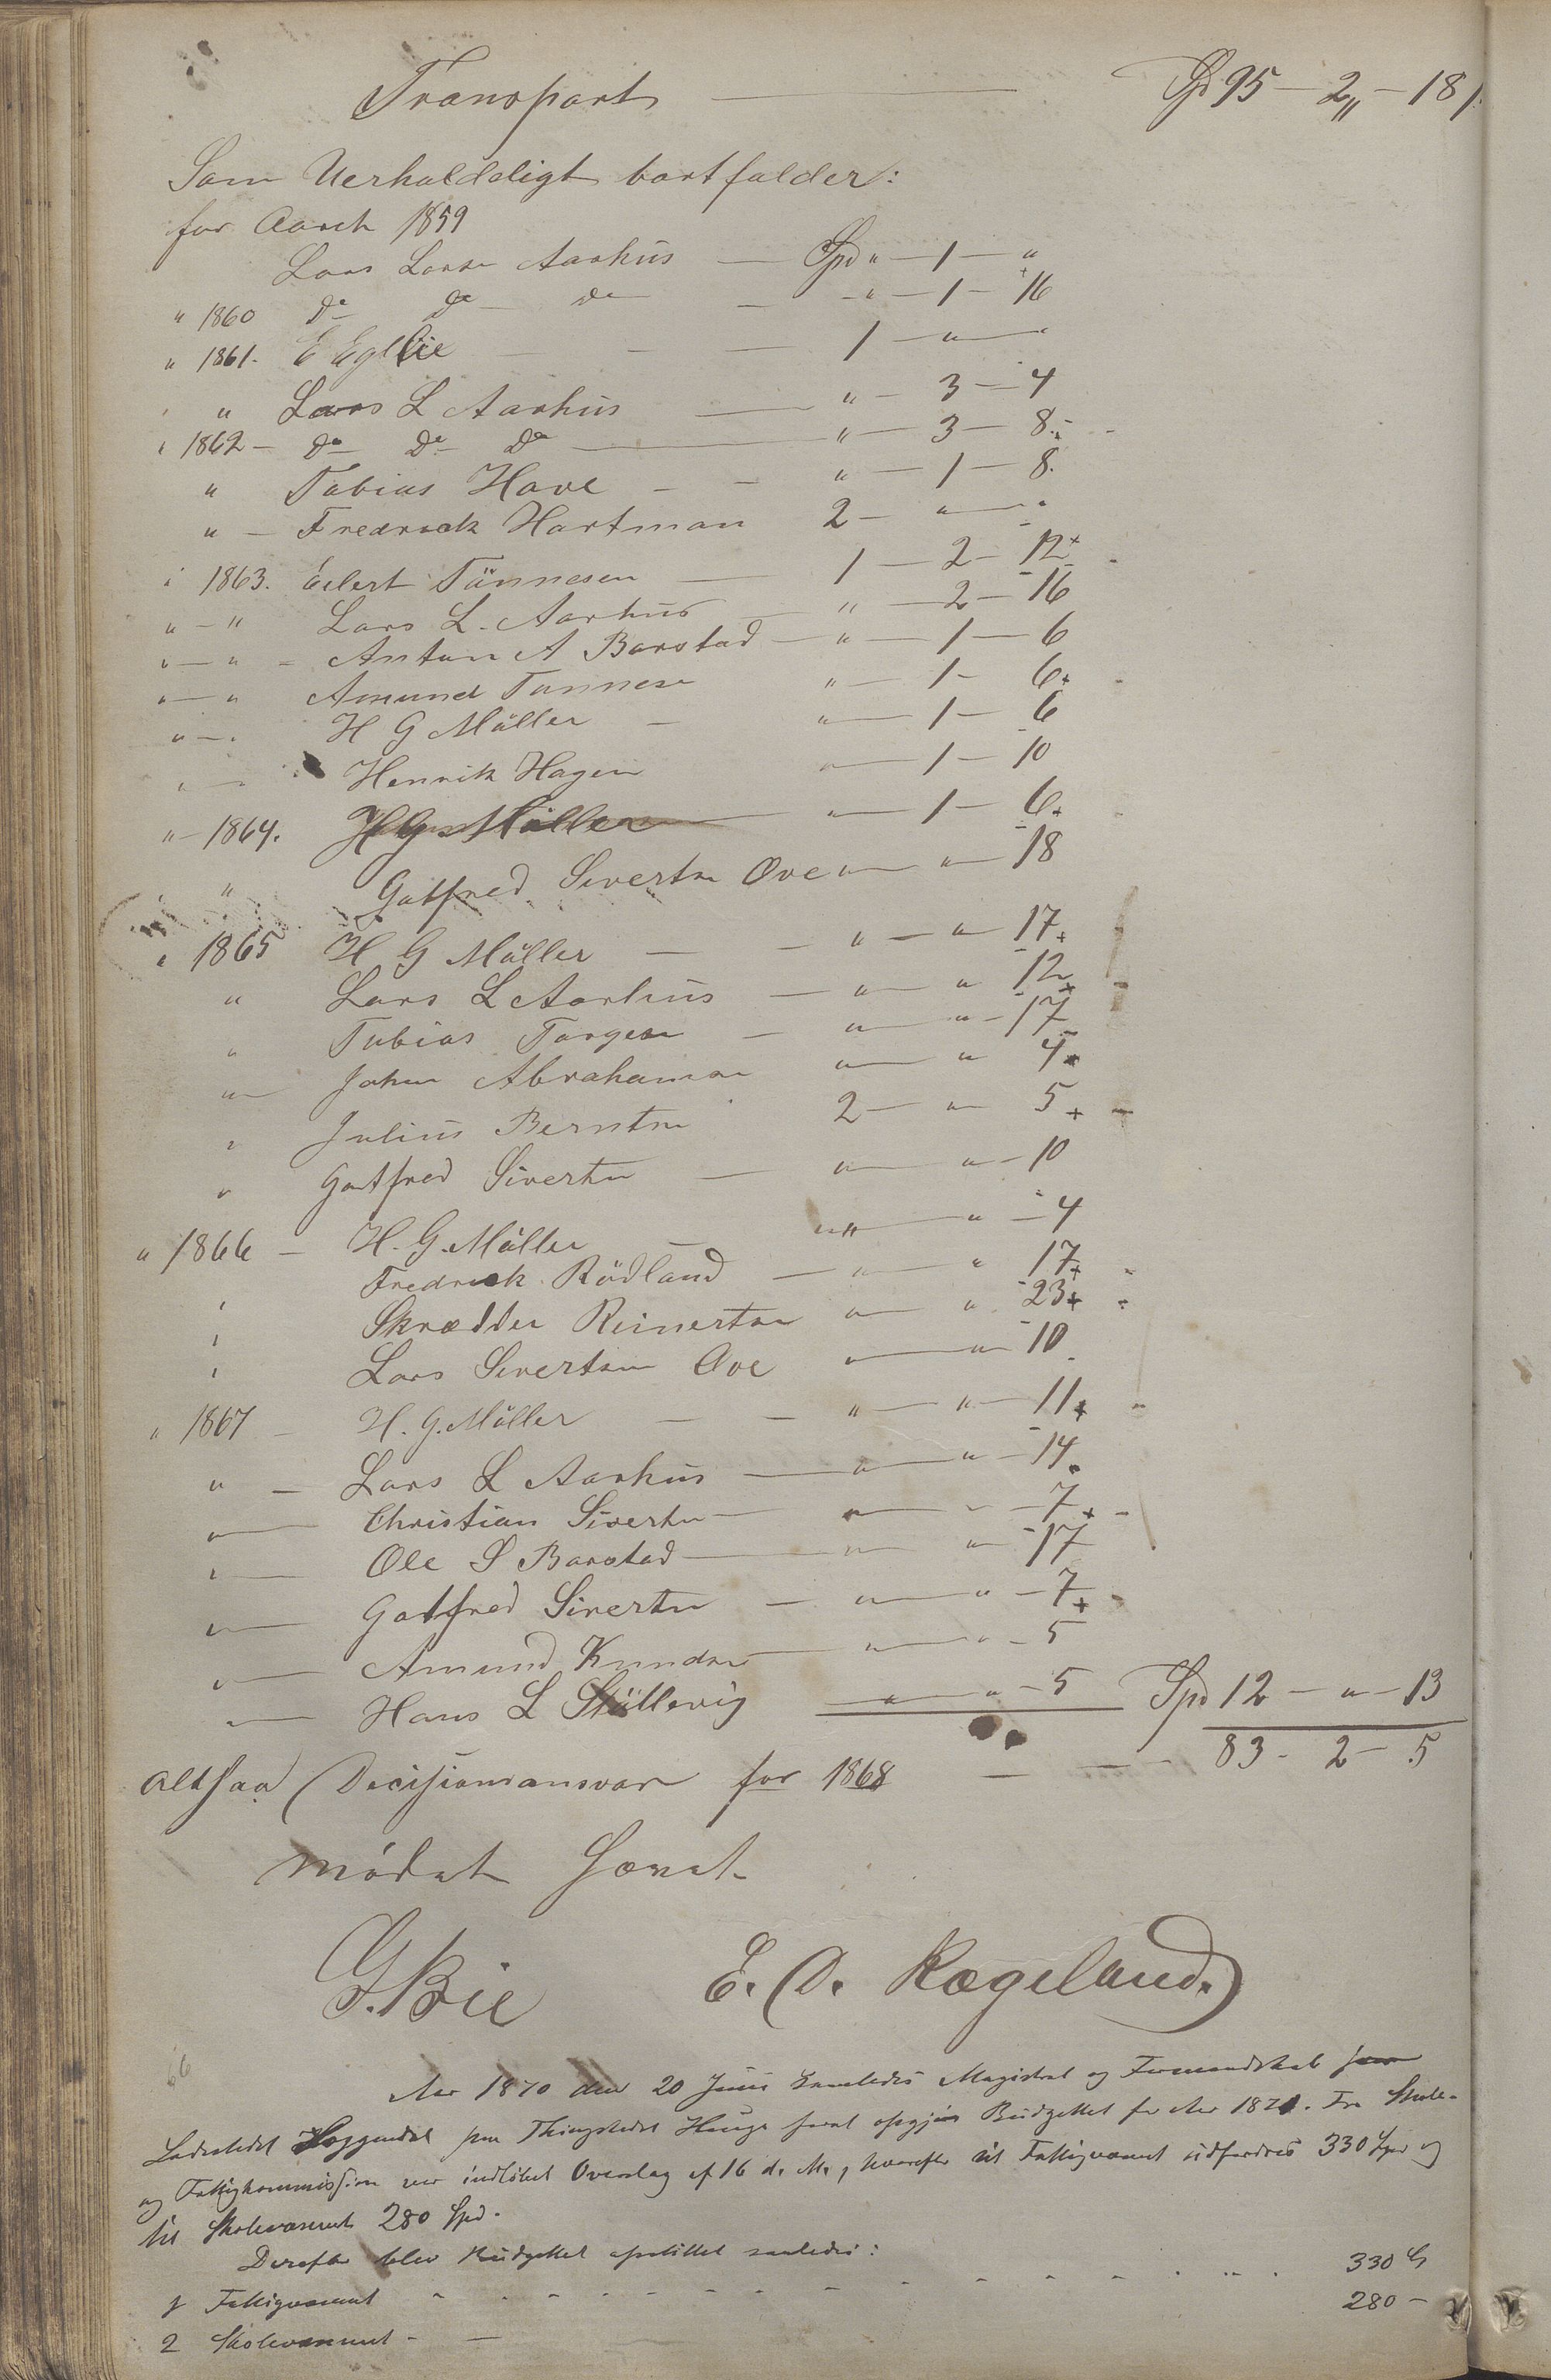 Transport — Spd 95 — 2 „ — 18 /.
Som Uerholdeligt bortfalder:
for Aaret 1859
Lars Larsen Aarhus — Spd " — 1 — "
" 1860 Do Do Do — " — 1 — 16
" 1861. E Eglie — — — 1 — " — "
" Lars L Aarhus — " — 3 — 4
" 1862 — Do Do Do — " — 3 — 8.
" Tobias Hove — — " — 1 — 8.
" — Fredrick Hartman 2 — " — "
" 1863. Eilert Tönnesen — 1 — 2 — 12
" — " Lars L. Aarhus — " — 2 — 16
" — " — Anton A Barstad — " — 1 — 6
" — " Amund Tönnesen " — 1 — 6
" — " H G Möller — " — 1 — 6
" — " Henrik Hagen " — 1 — 10
" — 1864. H G Möller — " — 1 — 6
" Gotfred Sivertsn Ove " — " — 18
" 1865 H G Möller — — " — " — 17
" Lars L Aarhus — " — " 12
" Tobias Torgesn — " — " — 17
" — John Abrahamsn " — " 4
" Julius Berntsn 2 — " — 5
" Gotfred Sivertsn — " — " — 10
" 1866 — H. G. Möller — " — " — 4
" Fredrick Rödland — " — " 17
" Skrædder Reinertsn " — " 23
" Lars Sivertsen Ove " — " — 10
" 1867 — H. G. Möller — — " — " — 11
" — Lars L Aarhus — " — " — 14
" — Christian Sivertsn — " — " — 7
" — Ole S Barstad — " — " — 17
" — Gotfred Sivertsn — " — " — 7
" — Amund Knudsn — " — " — 5
" — Hans L Stöllevig " — " — 5 Spd 12 — " — 13
altsaa Decisionsansvar for 1868 — — — 83 — 2 — 5
mödet hævet
G. Bie E. O. Rægeland.
66
Aar 1870 den 20 Juni samledes Magistrat og Formandskab
Ladestedet paa Thingstedet Hauge forat opgjøre Budgettet for Aar 1871. Fra Skole-
og Fattigkommission var indløbet Overslag af 16 d. M., hvorefter til Fattigvæsenet udfordres 330 Spd og
til Skolevæsenet 280 Spd.
Derefter blev Budgettet opstillet saaledes:
1 Fattigvæsenet - - - - - - - - - - - 330 S
2 Skolevæsenet - — 280 —